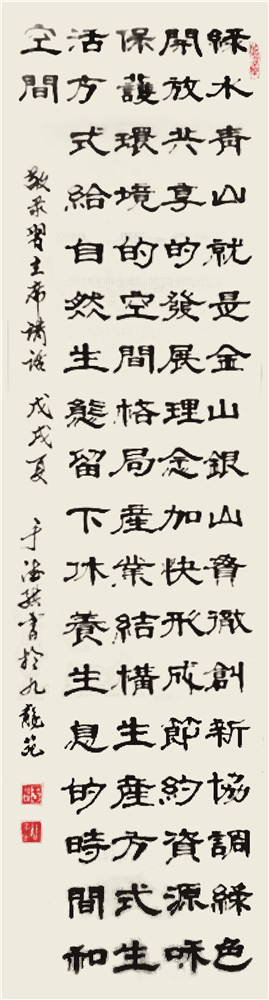 綠水青山就是金山銀山貫徹創新協調綠色
開放共享的發展理念加快形成節約資源和
保護環境的空間格局產業結構生產方式生
活方式給自然生態留下休養生息的時間和
空間
敬录習主席講話 戊戌夏 于書於九龍苑